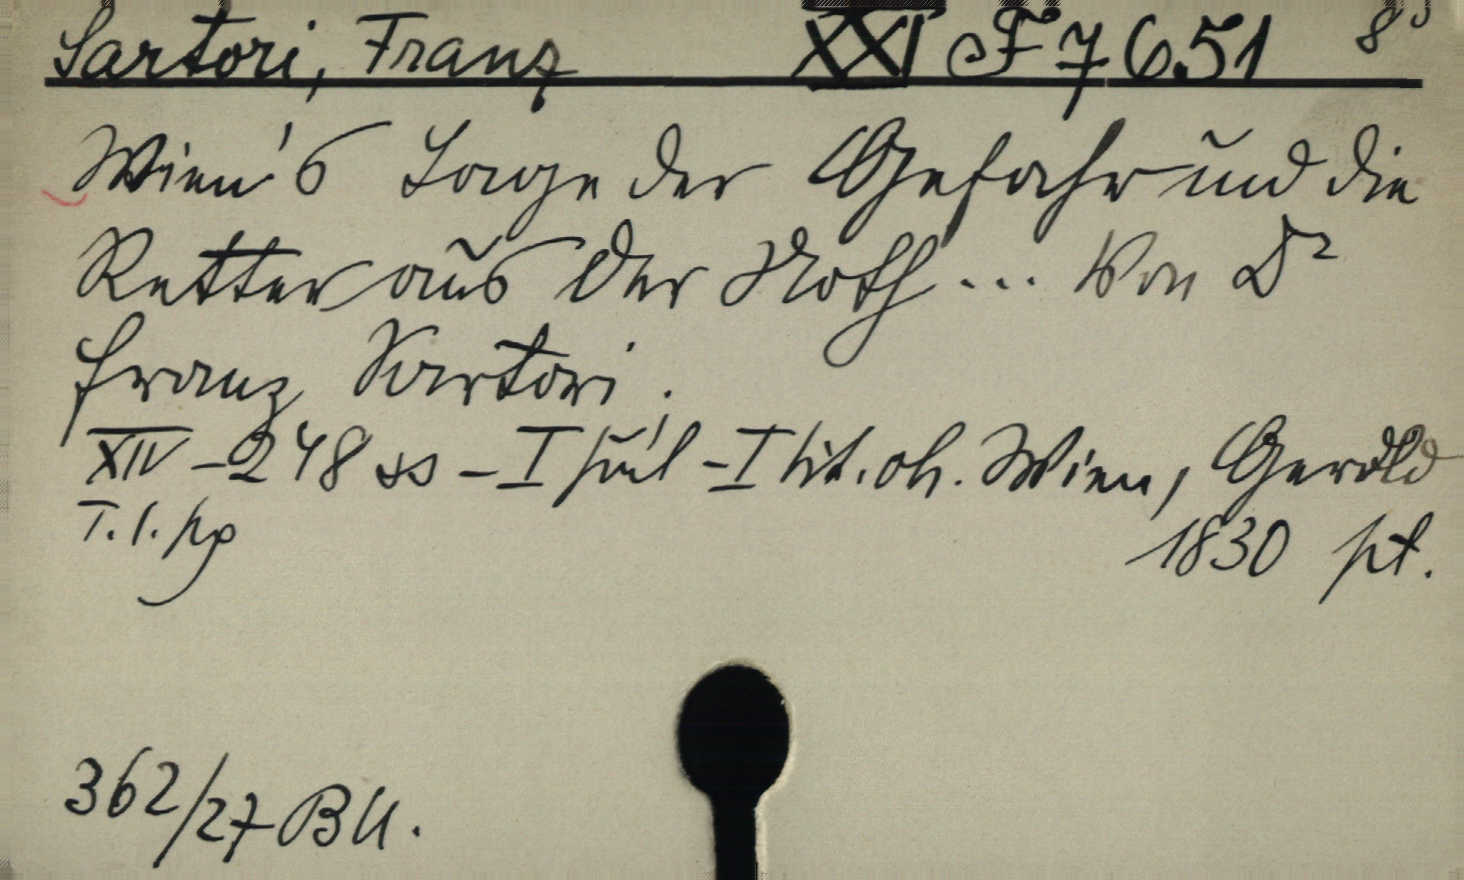 Sartori, Franz XXI F 7651 8°
Wien's Tage der Gefahr und die
Retter aus der Noth ... Von Dr
Franz Sartori.
XIV – 248 ss – I – I lit. Wien, Gerold
T. l. pp 1830 pt.
362/27 BU.